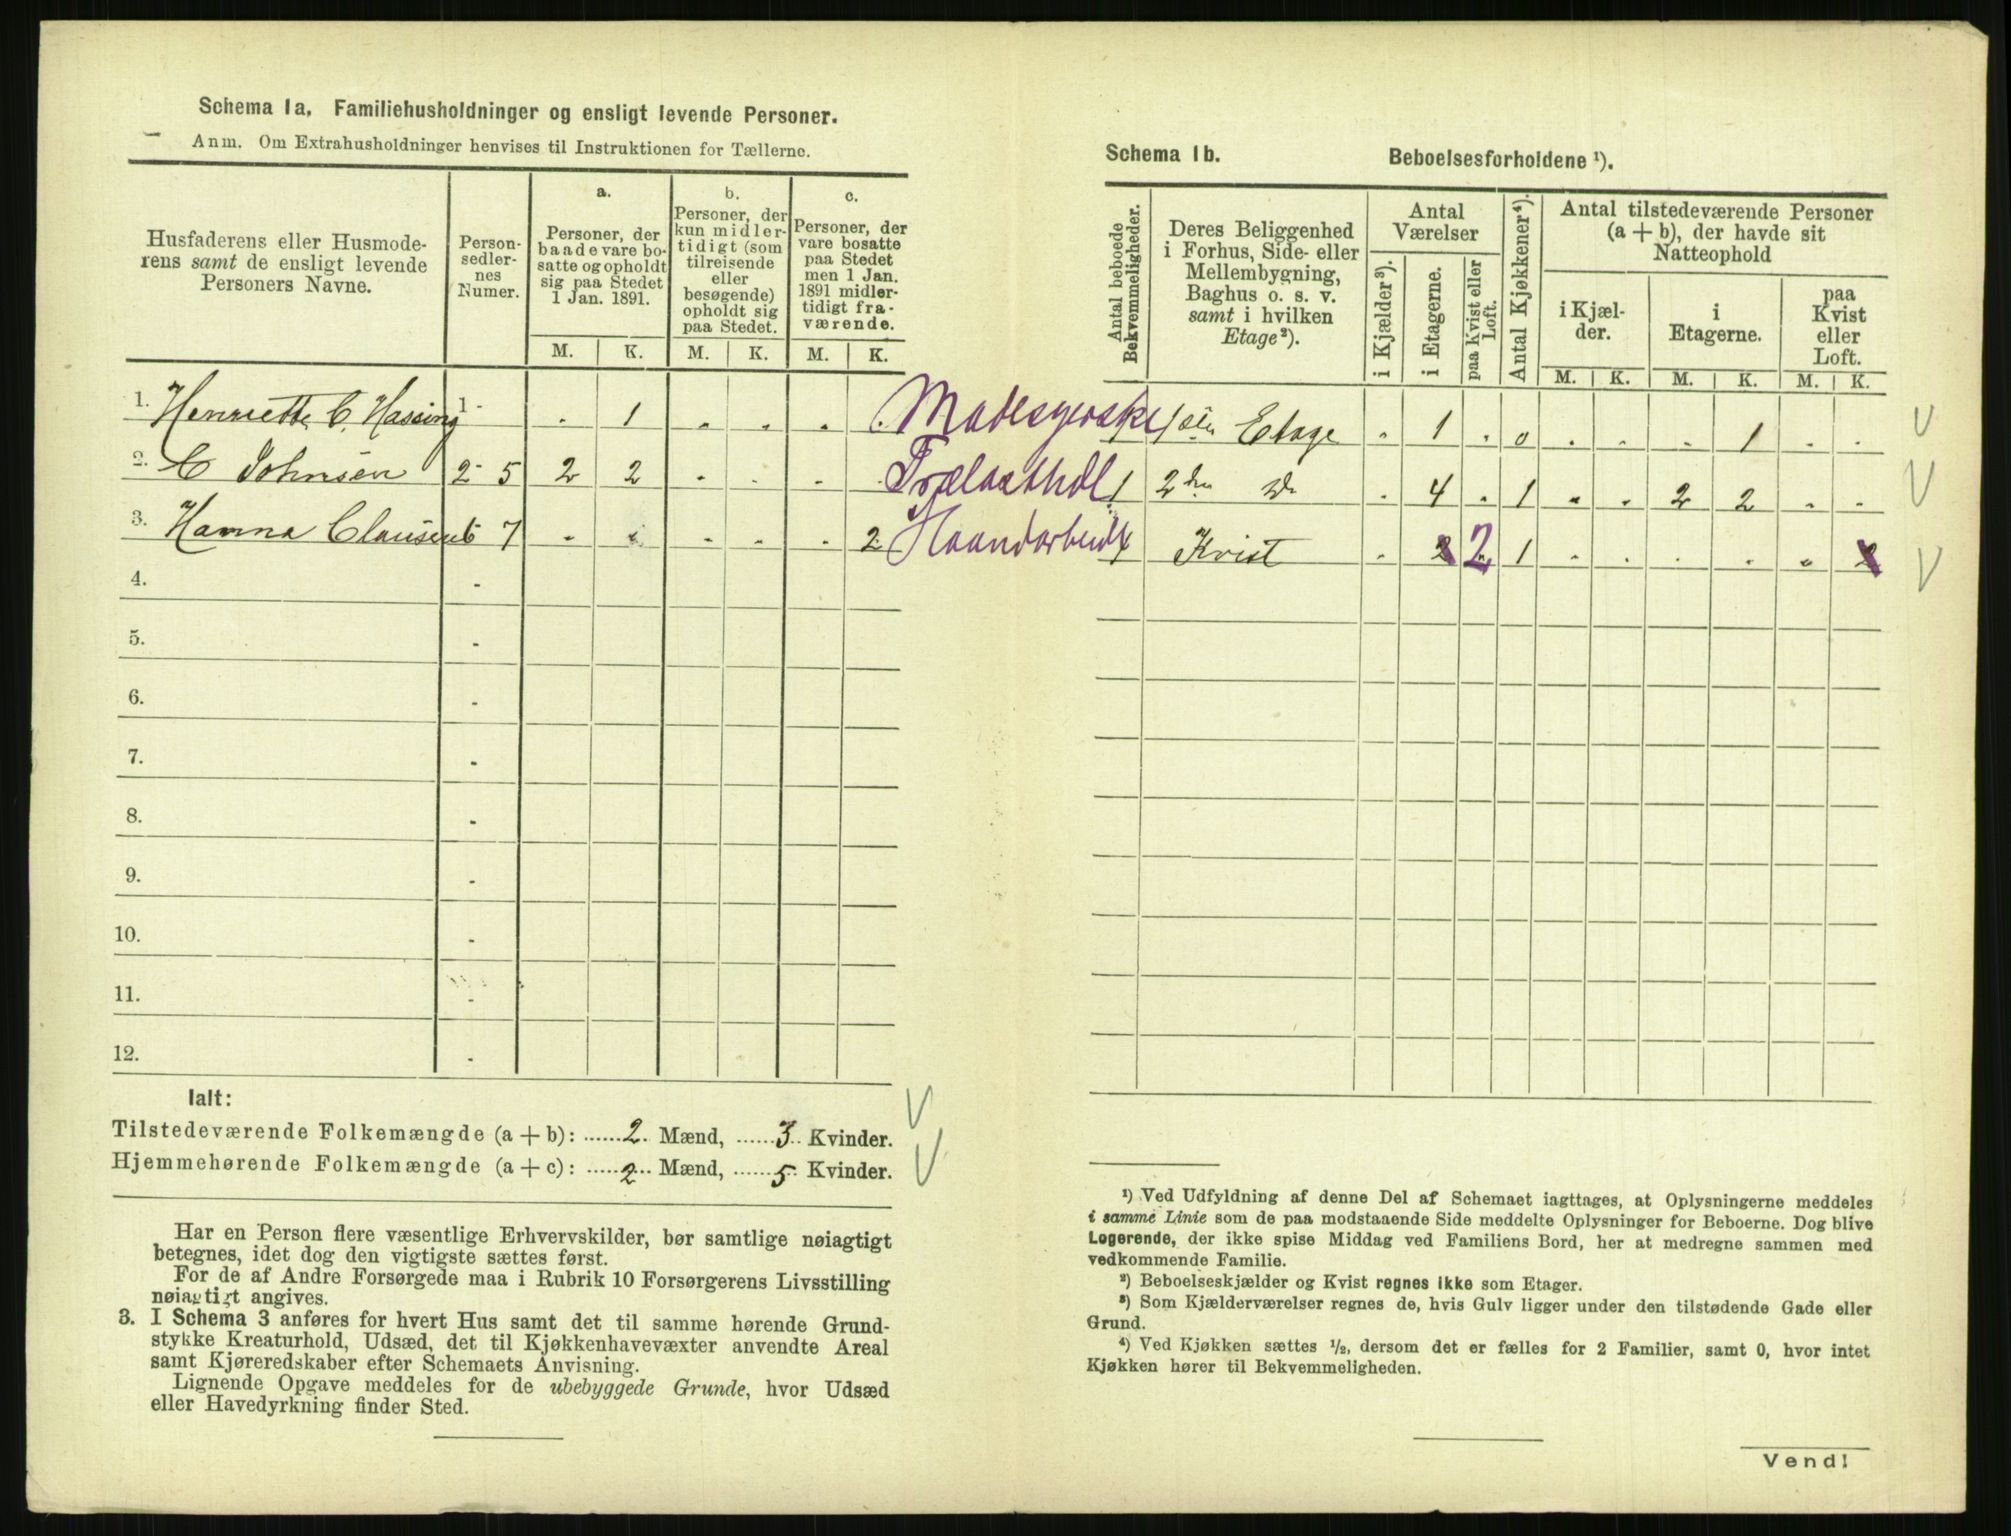 Schema 1a. Familiehusholdninger og ensligt levende Personer.
Anm. Om Extrahusholdninger henvises til Instruktionen for Tællerne.
Husfaderens eller Husmoderens samt de ensligt levende Personers Navne.
Person-sedler-nes Numer.
a. Personer, der baade vare bosatte og opholdt sig paa Stedet 1 Jan. 1891.
b. Personer, der kun midlertidigt (som tilreisende eller besøgende) opholdt sig paa Stedet.
c. Personer, der vare bosatte paa Stedet men 1 Jan. 1891 midlertidigt fraværende.
M. K. M. K. M. K.
1. Henriette C. Hassing 1 - . 1 . . . .
2. C Johnsen 2 - 5 2 2 . . . .
3. Hanna Clausen 6 - 7 . . . . . 2
4. -
5. -
6. -
7. -
8. -
9. -
10. -
11. -
12. -
Ialt:
Tilstedeværende Folkemængde (a + b): ...... 2 .. Mænd, ...... 3 .. Kvinder.
Hjemmehørende Folkemængde (a + c): ...... 2 ... Mænd, ...... 5 .. Kvinder.
Har en Person flere væsentlige Erhvervskilder, bør samtlige nøiagtigt
betegnes, idet dog den vigtigste sættes først.
For de af Andre Forsørgede maa i Rubrik 10 Forsørgerens Livsstilling
nøiagtigt angives.
3. I Schema 3 anføres for hvert Hus samt det til samme hørende Grund-
stykke Kreaturhold, Udsæd, det til Kjøkkenhavevæxter anvendte Areal
samt Kjøreredskaber efter Schemaets Anvisning.
Lignende Opgave meddeles for de ubebyggede Grunde, hvor Udsæd
eller Havedyrkning finder Sted.
Schema 1b. Beboelsesforholdene ¹).
Antal beboede Bekvemmeligheder.
Deres Beliggenhed i Forhus, Side- eller Mellembygning, Baghus o. s. v. samt i hvilken Etage²).
Antal Værelser
i Kjælder³).
i Etagerne.
paa Kvist eller Loft.
Antal Kjøkkener⁴).
Antal tilstedeværende Personer (a + b), der havde sit Natteophold
i Kjælder.
i Etagerne.
paa Kvist eller Loft.
M. K. M. K. M. K.
1 1ste Etage . 1 . 0 . . . 1 . .
Trælasthdl 1 2den Do . 4 . 1 . . 2 2 . .
Haandarbeide 1 Kvist . 2 2 1 . . . . . 2
¹) Ved Udfyldning af denne Del af Schemaet iagttages, at Oplysningerne meddeles
i samme Linie som de paa modstaaende Side meddelte Oplysninger for Beboerne. Dog blive
Logerende, der ikke spise Middag ved Familiens Bord, her at medregne sammen med
vedkommende Familie.
²) Beboelseskjælder og Kvist regnes ikke som Etager.
³) Som Kjælderværelser regnes de, hvis Gulv ligger under den tilstødende Gade eller
Grund.
⁴) Ved Kjøkken sættes ½, dersom det er fælles for 2 Familier, samt 0, hvor intet
Kjøkken hører til Bekvemmeligheden.
Vend!